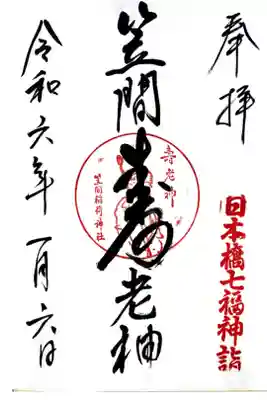 奉拝
日本橋七福神詣
笠間寿老神
寿老神
笠間稲荷神社
令和六年一月六日